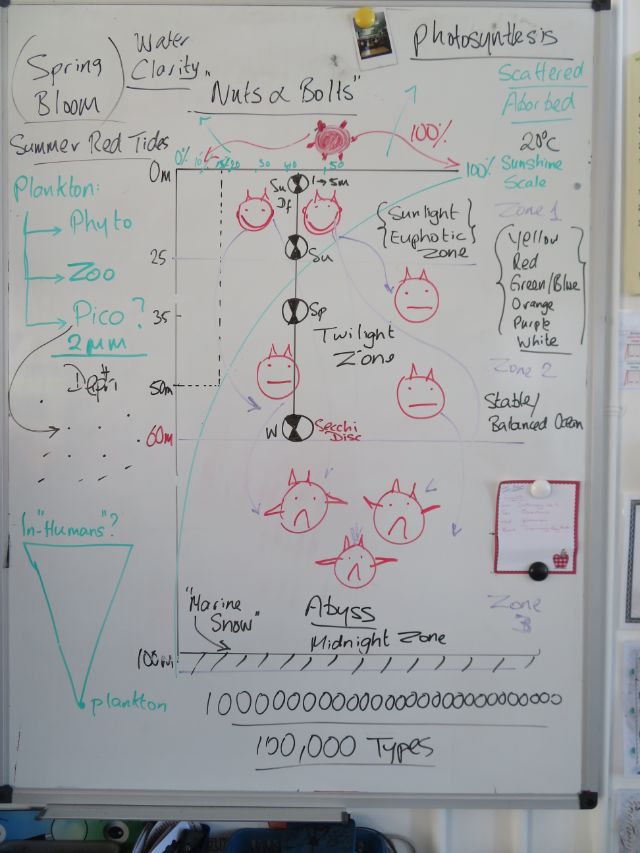 Spring
Bloom
Water
Clarity"
Photosynthesis
"Nuts & Bolts"
Scattered
Aborbed
Summer Red Tides
100%
20°c
0%
20
30
40
50
100%
Sunshine
Scale
0m
Su
1→5m
Df
Plankton:
Phyto
Zoo
Pico?
2µm
Sunlight
Euphotic
Zone
Zone 1
Yellow
Red
Green/Blue
Orange
Purple
White
25
Su
35
Sp
Twilight
Zone
Zone 2
50m
Stable/
Balanced Ocean
60m
W
Secchi
Disc
In-"Humans"?
"Marine
Snow"
Abyss
Midnight Zone
Zone
3
100m
plankton
100,000 Types